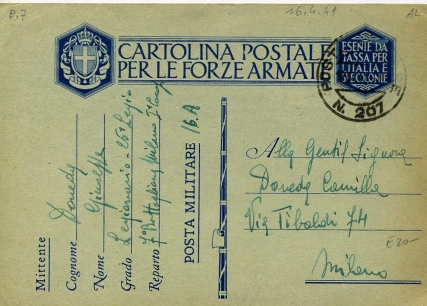 P.7
16.4.41
AL
CARTOLINA POSTALE
PER LE FORZE ARMATE
ESENTE DA
TASSA PER
L'ITALIA E
COLONIE
POSTA
N. 207
Mittente
Cognome Doneda
Nome Giuseppe
Grado Legionario - 26ª Legio
Reparto 7° Battaglione Milano
POSTA MILITARE 16.A
Alla Gentil Signora
Doneda Camilla
Via Tibaldi 74
Milano
E 20-